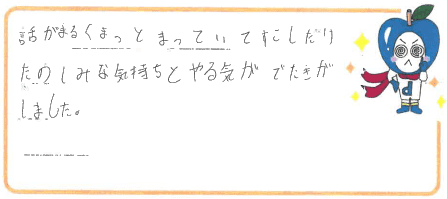 話がまるくまっとまっていてすこしだけ
たのしみな気持ちとやる気がでたきが
しました。